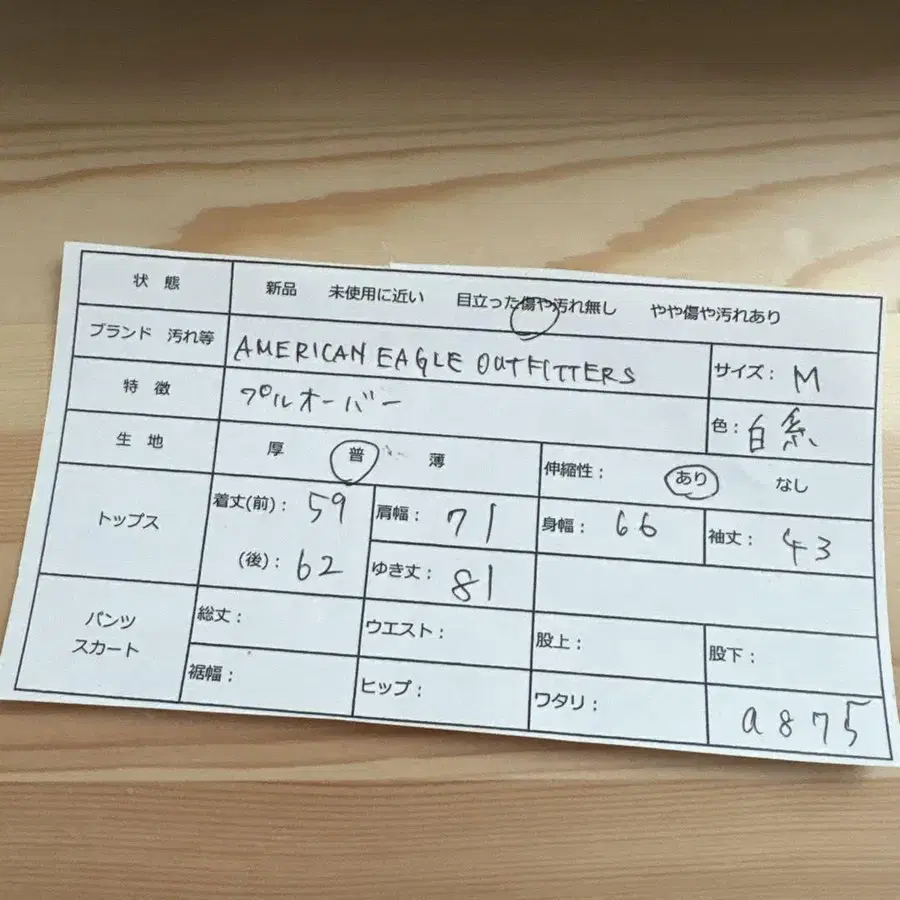 状 態 新品 未使用に近い 目立った傷や汚れ無し やや傷や汚れあり
ブランド 汚れ等 AMERICAN EAGLE OUTFITTERS サイズ: M
特 徴 プルオーバー 色: 白系
生 地 厚 普 薄 伸縮性: あり なし
トップス 着丈(前): 59 肩幅: 71 身幅: 66 袖丈: 43
(後): 62 ゆき丈: 81
パンツ スカート 総丈: ウエスト: 股上: 股下:
裾幅: ヒップ: ワタリ: a875